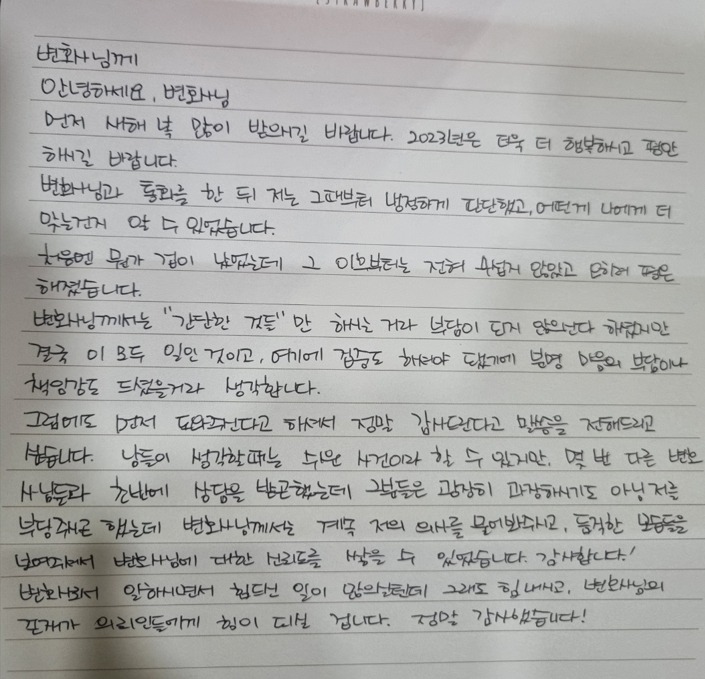 [STRAWBERRY]
변호사님께
안녕하세요, 변호사님
먼저 새해 복 많이 받으시길 바랍니다. 2023년은 더욱 더 행복하시고 평안
하시길 바랍니다.
변호사님과 통화를 한 뒤 저는 그때부터 냉정하게 판단했고, 어떤게 나에게 더
맞는건지 알 수 있었습니다.
처음엔 뭔가 겁이 났었는데 그 이후부터는 전혀 무섭지 않았고 오히려 평온
해졌습니다.
변호사님께서는 "간단한 것들"만 하시는 거라 부담이 되지 않으신다 하셨지만
결국 이 모두 일인 것이고, 여기에 검증도 하셔야 됐기에 분명 마음의 부담이나
책임감도 드셨을거라 생각합니다.
그럼에도 먼저 도와주신다고 하셔서 정말 감사드린다고 말씀을 전해드리고
싶습니다. 남들이 생각할때는 쉬운 사건이라 할 수 있지만, 몇 번 다른 변호
사님들과 초반에 상담을 받곤했는데 그분들은 굉장히 과장하시기도 아님 저를
부담주곤 했는데 변호사님께서는 계속 저의 의사를 물어봐주시고, 듬직한 모습들을
보여주셔서 변호사님에 대한 신뢰도를 쌓을 수 있었습니다. 감사합니다!
일하시면서 힘드신 일이 많으실텐데 그래도 힘내시고, 변호사님의
존재가 의뢰인들에게 힘이 되실 겁니다. 정말 감사했습니다!